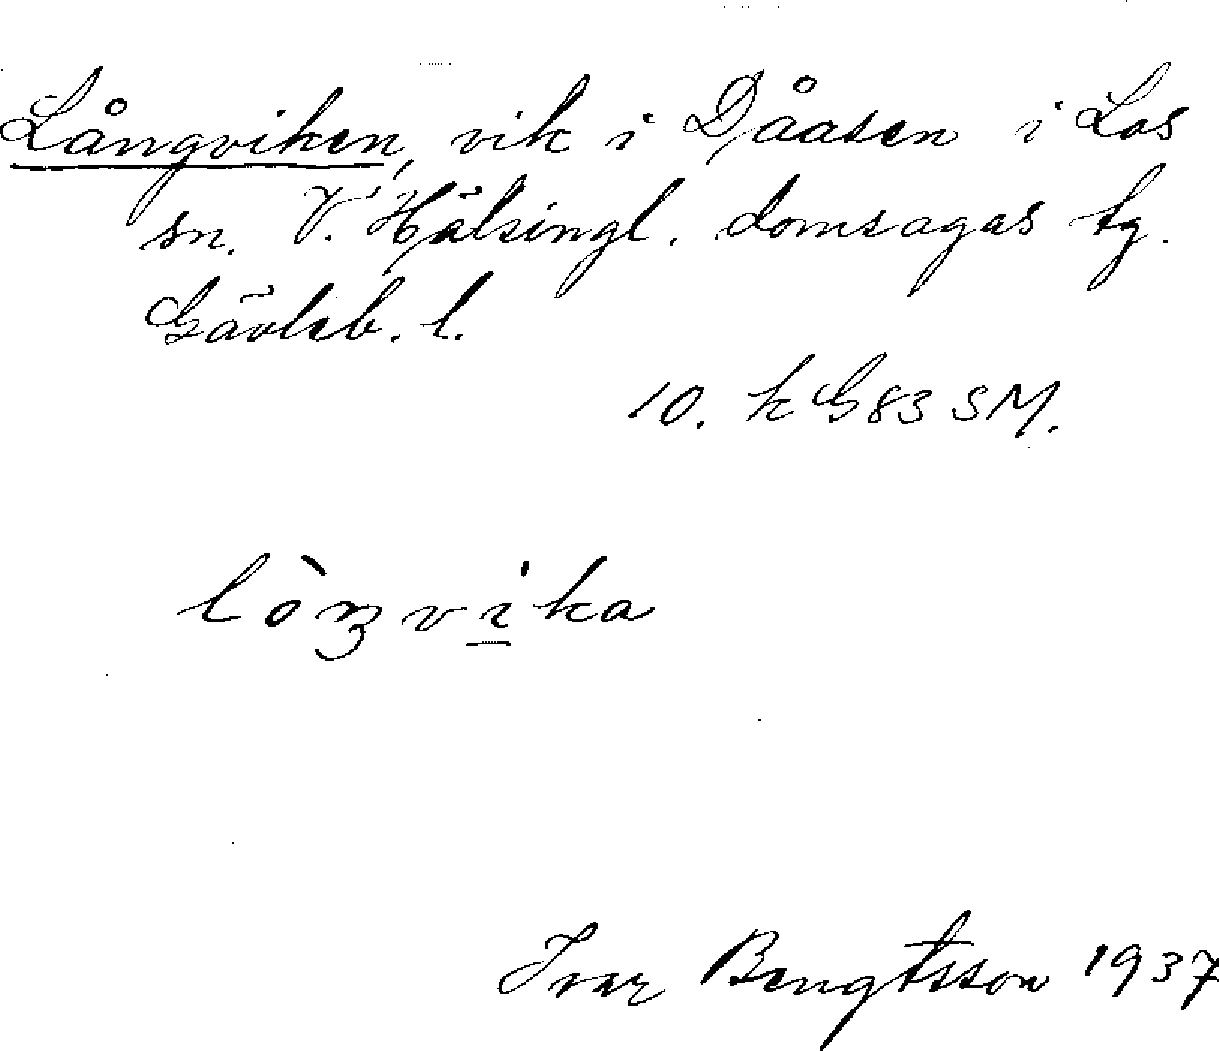 Långviken, vik i Dåasen i Los
sn. V. Hälsingl. domsagas tg.
Gävleb. l.
10. k G83 SM.
lòŋvika
Ivar Bengtsson 1937